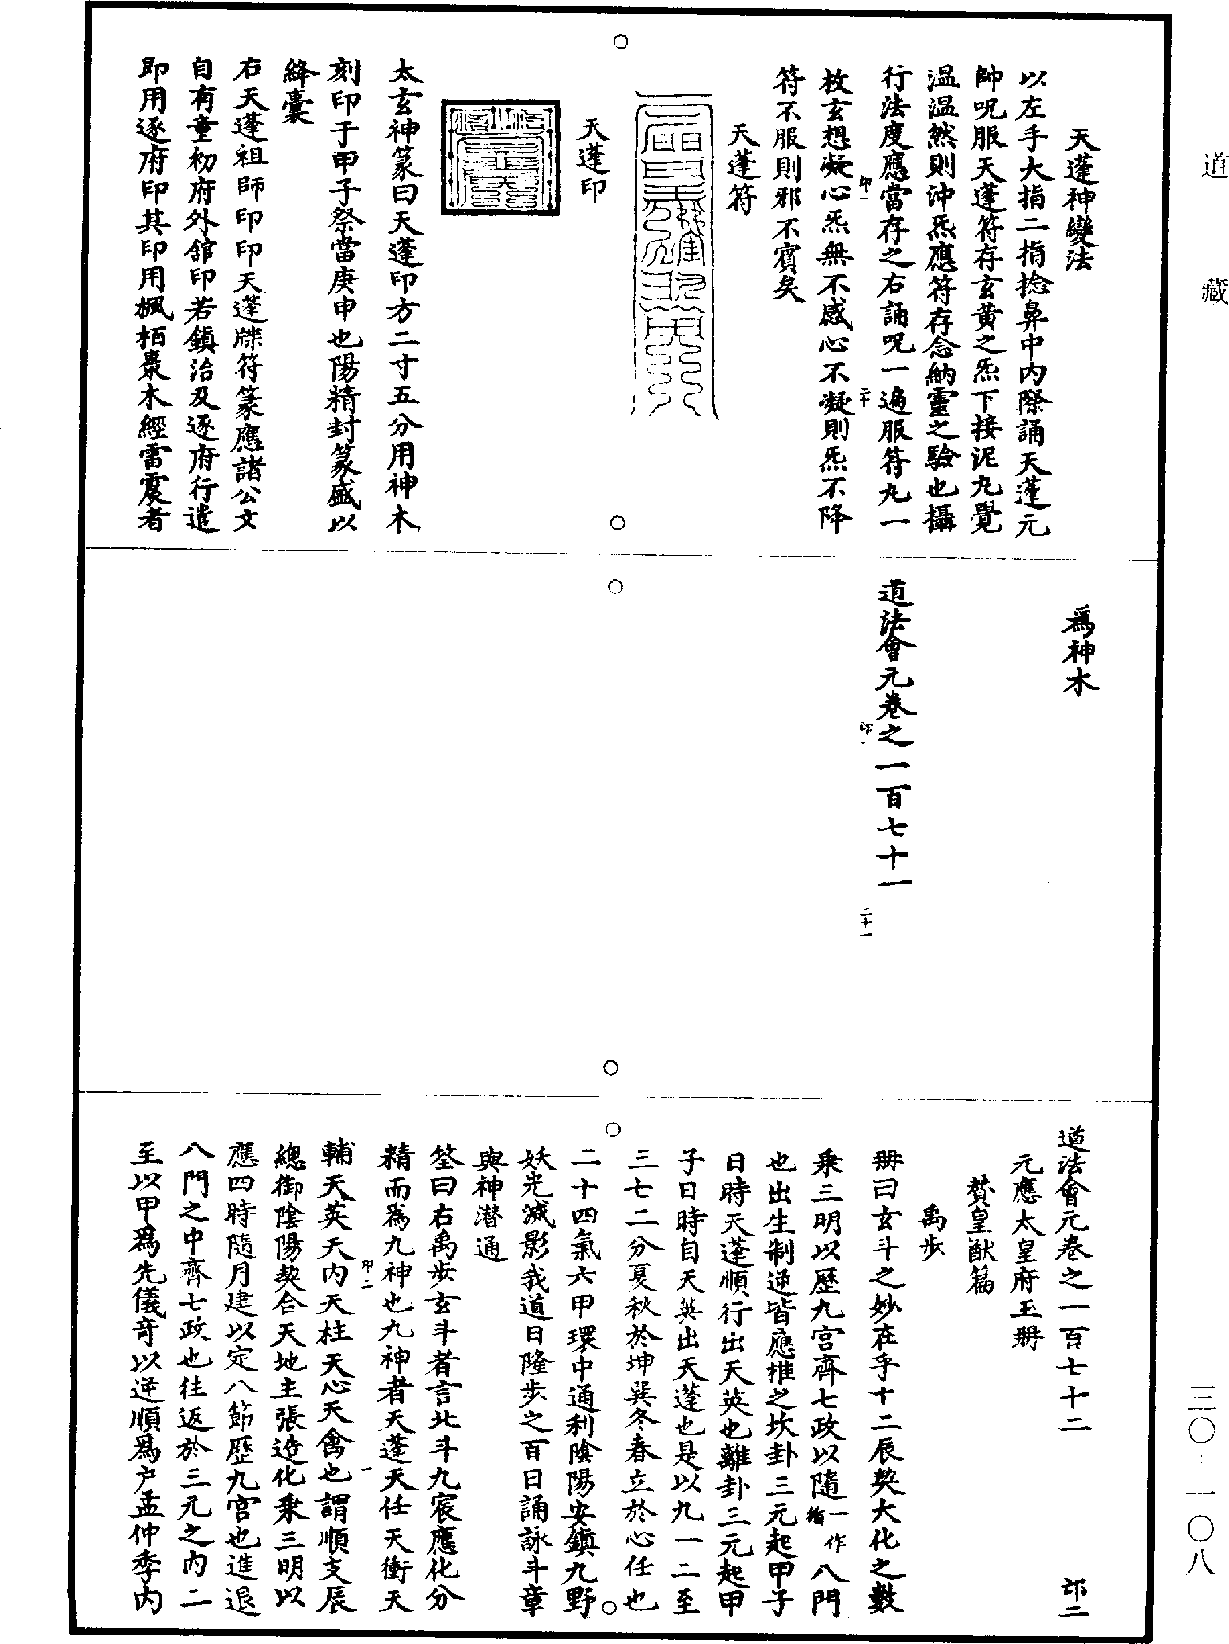 道藏
天蓬神變法
以左手大指二指捻鼻中內際誦天蓬元
帥呪服天蓬符存玄黃之炁下接泥丸覺
溫溫然則沖炁應符存念納靈之驗也攝
行法度應當存之右誦呪一遍服符九一
枚玄想凝心炁無不感心不凝則炁不降
符不服則邪不賓矣
天蓬符
天蓬印
太玄神篆曰天蓬印方二寸五分用神木
刻印于甲子祭當庚申也陽精封篆盛以
絳囊
右天蓬祖師印印天蓬牒符篆應諸公文
自有童初府外舘印若鎮治及逐府行遣
即用逐府印其印用楓栢棗木經雷震者
爲神木
道法會元卷之一百七十一
道法會元卷之一百七十二
元應太皇府玉冊
贊皇猷篇
禹步
冊曰玄斗之妙在乎十二辰契大化之數
乘三明以歷九宮齊七政以隨一作循八門
也出生制逆皆應推之坎卦三元起甲子
日時天蓬順行出天英也離卦三元起甲
子日時自天英出天蓬也是以九一二至
三七二分夏秋於坤巽冬春立於心任也
二十四氣六甲環中通利陰陽安鎮九野
妖光滅影我道日隆步之百日誦詠斗章
與神潛通
筌曰右禹步玄斗者言北斗九宸應化分
精而爲九神也九神者天蓬天任天衝天
輔天英天內天柱天心天禽也謂順支辰
總御陰陽契合天地主張造化乘三明以
應四時隨月建以定八節歷九宮也進退
八門之中齊七政也往返於三元之內二
至以甲爲先儀奇以逆順爲户孟仲季內
三〇·一〇八